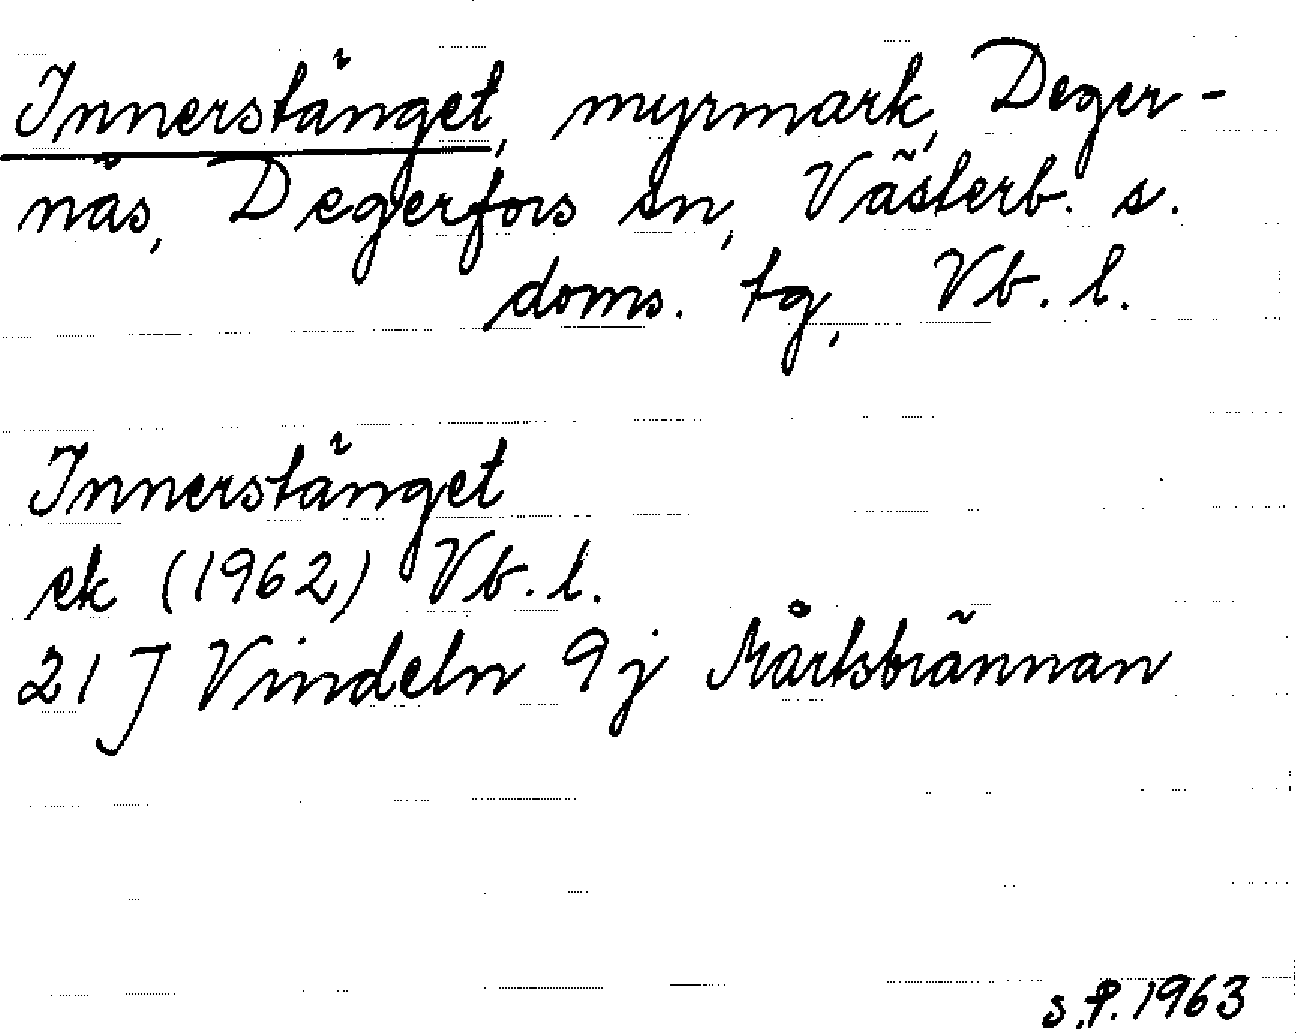 Innerstänget, myrmark, Deger-
näs, Degerfors sn, Västerb. s.
doms. tg, Vb. l.
Innerstänget
ek (1962) Vb. l.
21 J Vindeln 9 j Mårtsbrännan
s.P. 1963